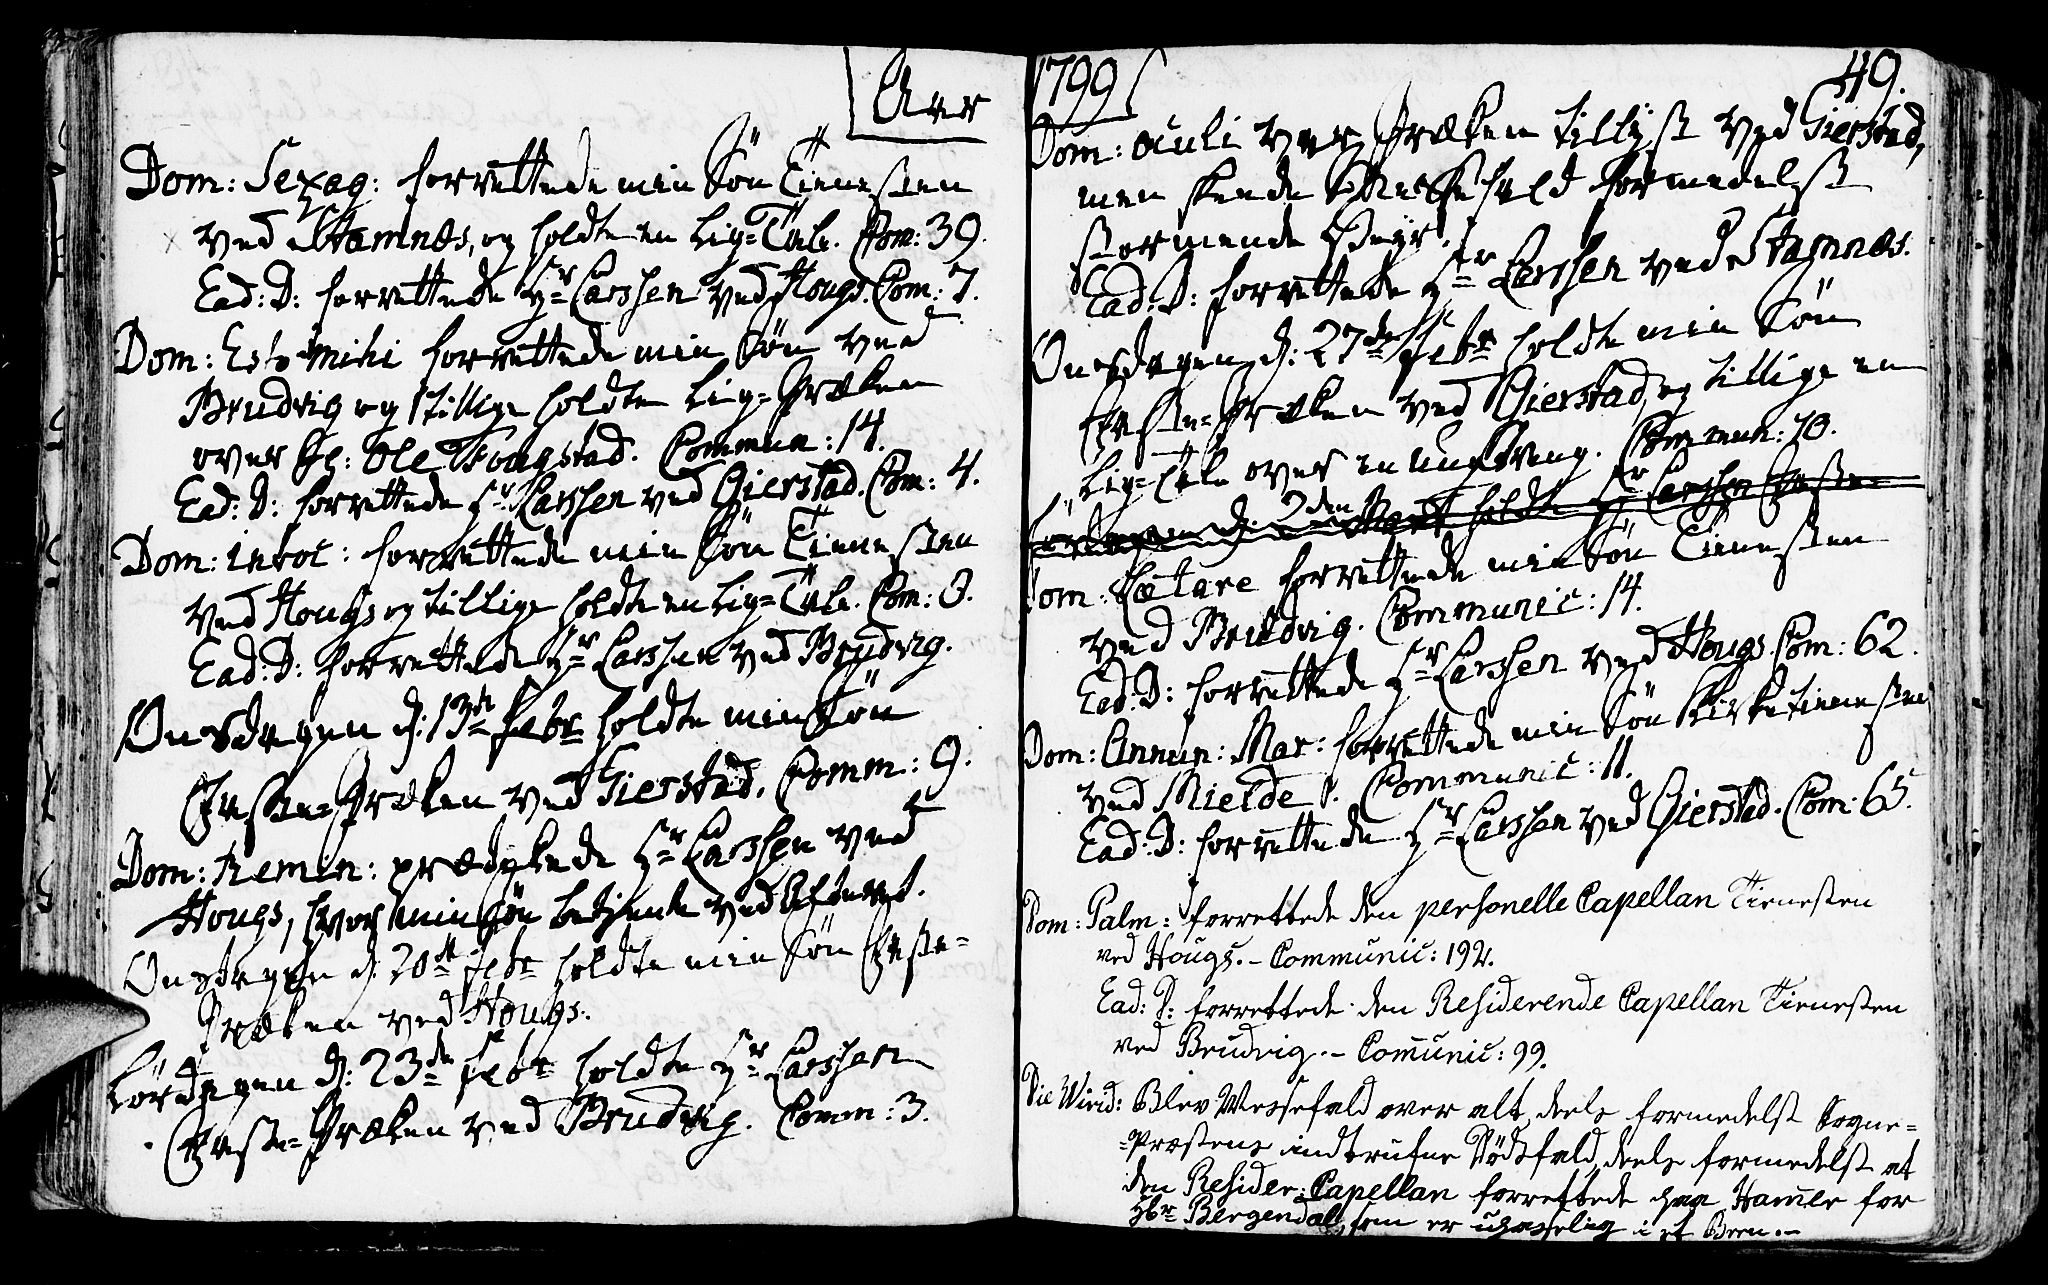 Aar
Dom: Sexag: forrettede min Søn Tienesten
ved Stamnæs, og holdte en Lig=Tale. Com: 39.
Ead: D: forrettede Hr Larssen ved Hougs. Com: 7.
Dom: Esto mihi forrettede min Søn ved
Brudvig og tillige holdte Lig=Præken
over Ole Fougstad. Commun: 14.
Ead: D: forrettede Hr Larssen ved Gierstad. Com: 4.
Dom: invoc: forrettede min Søn Tienesten
ved Hougs og tillige holdte en Lig=Tale. Com: 3.
Ead: D: forrettede Hr Larssen ved Brudvig.
Onsdagen d: 13de Febr holdte min Søn
Faste=Præken ved Gierstad. Comm: 9.
Dom: Remin: prædikede Hr Larssen ved
Hougs, hvor min Søn betjente ved Alteret.
Onsdagen d: 20de Febr holdte min Søn Faste=
Præken ved Hougs.
Lørdagen d: 23de Febr holdte Hr Larssen
Faste=Præken ved Brudvig. Comm: 3.
1799
49.
Dom: oculi var Præken tillyst ved Gierstad,
men skende Messefald formedelst
stormende Veyr.
Ead: D: forrettede Hr Larssen ved Stamnæs.
Onsdagen d: 27de Febr holdte min Søn
Faste=Præken ved Gierstad, og tillige en
Lig=Tale over en ung Dreng. Commun: 10.
Lørdagen d: 2den Mart holdte Hr Larssen Faste=
Dom: Lætare forrettede min Søn Tienesten
ved Brudvig. Communic: 14.
Ead: D: forrettede Hr Larssen ved Hougs. Com: 62.
Dom: Annun: Mar: forrettede min Søn Kirketienesten
ved Mielde. Communic: 11.
Ead: D: forrettede Hr Larssen ved Gierstad. Com: 65.
Dom: Palm: forrettede den personelle Capellan Tienesten
ved Hougs. - Communic: 192.
Ead: D: forrettede den Residerende Capellan Tienesten
ved Brudvig. - Comunic: 99.
Die Virid: Blev Messefald over alt, deels formedelst Sogne=
=Præstens indtrufne Dødsfald, deels formedelst at
den Resider: Capellan forrettede paa Hamre for
Hr Bergendal, som er upasselig i et Been. -